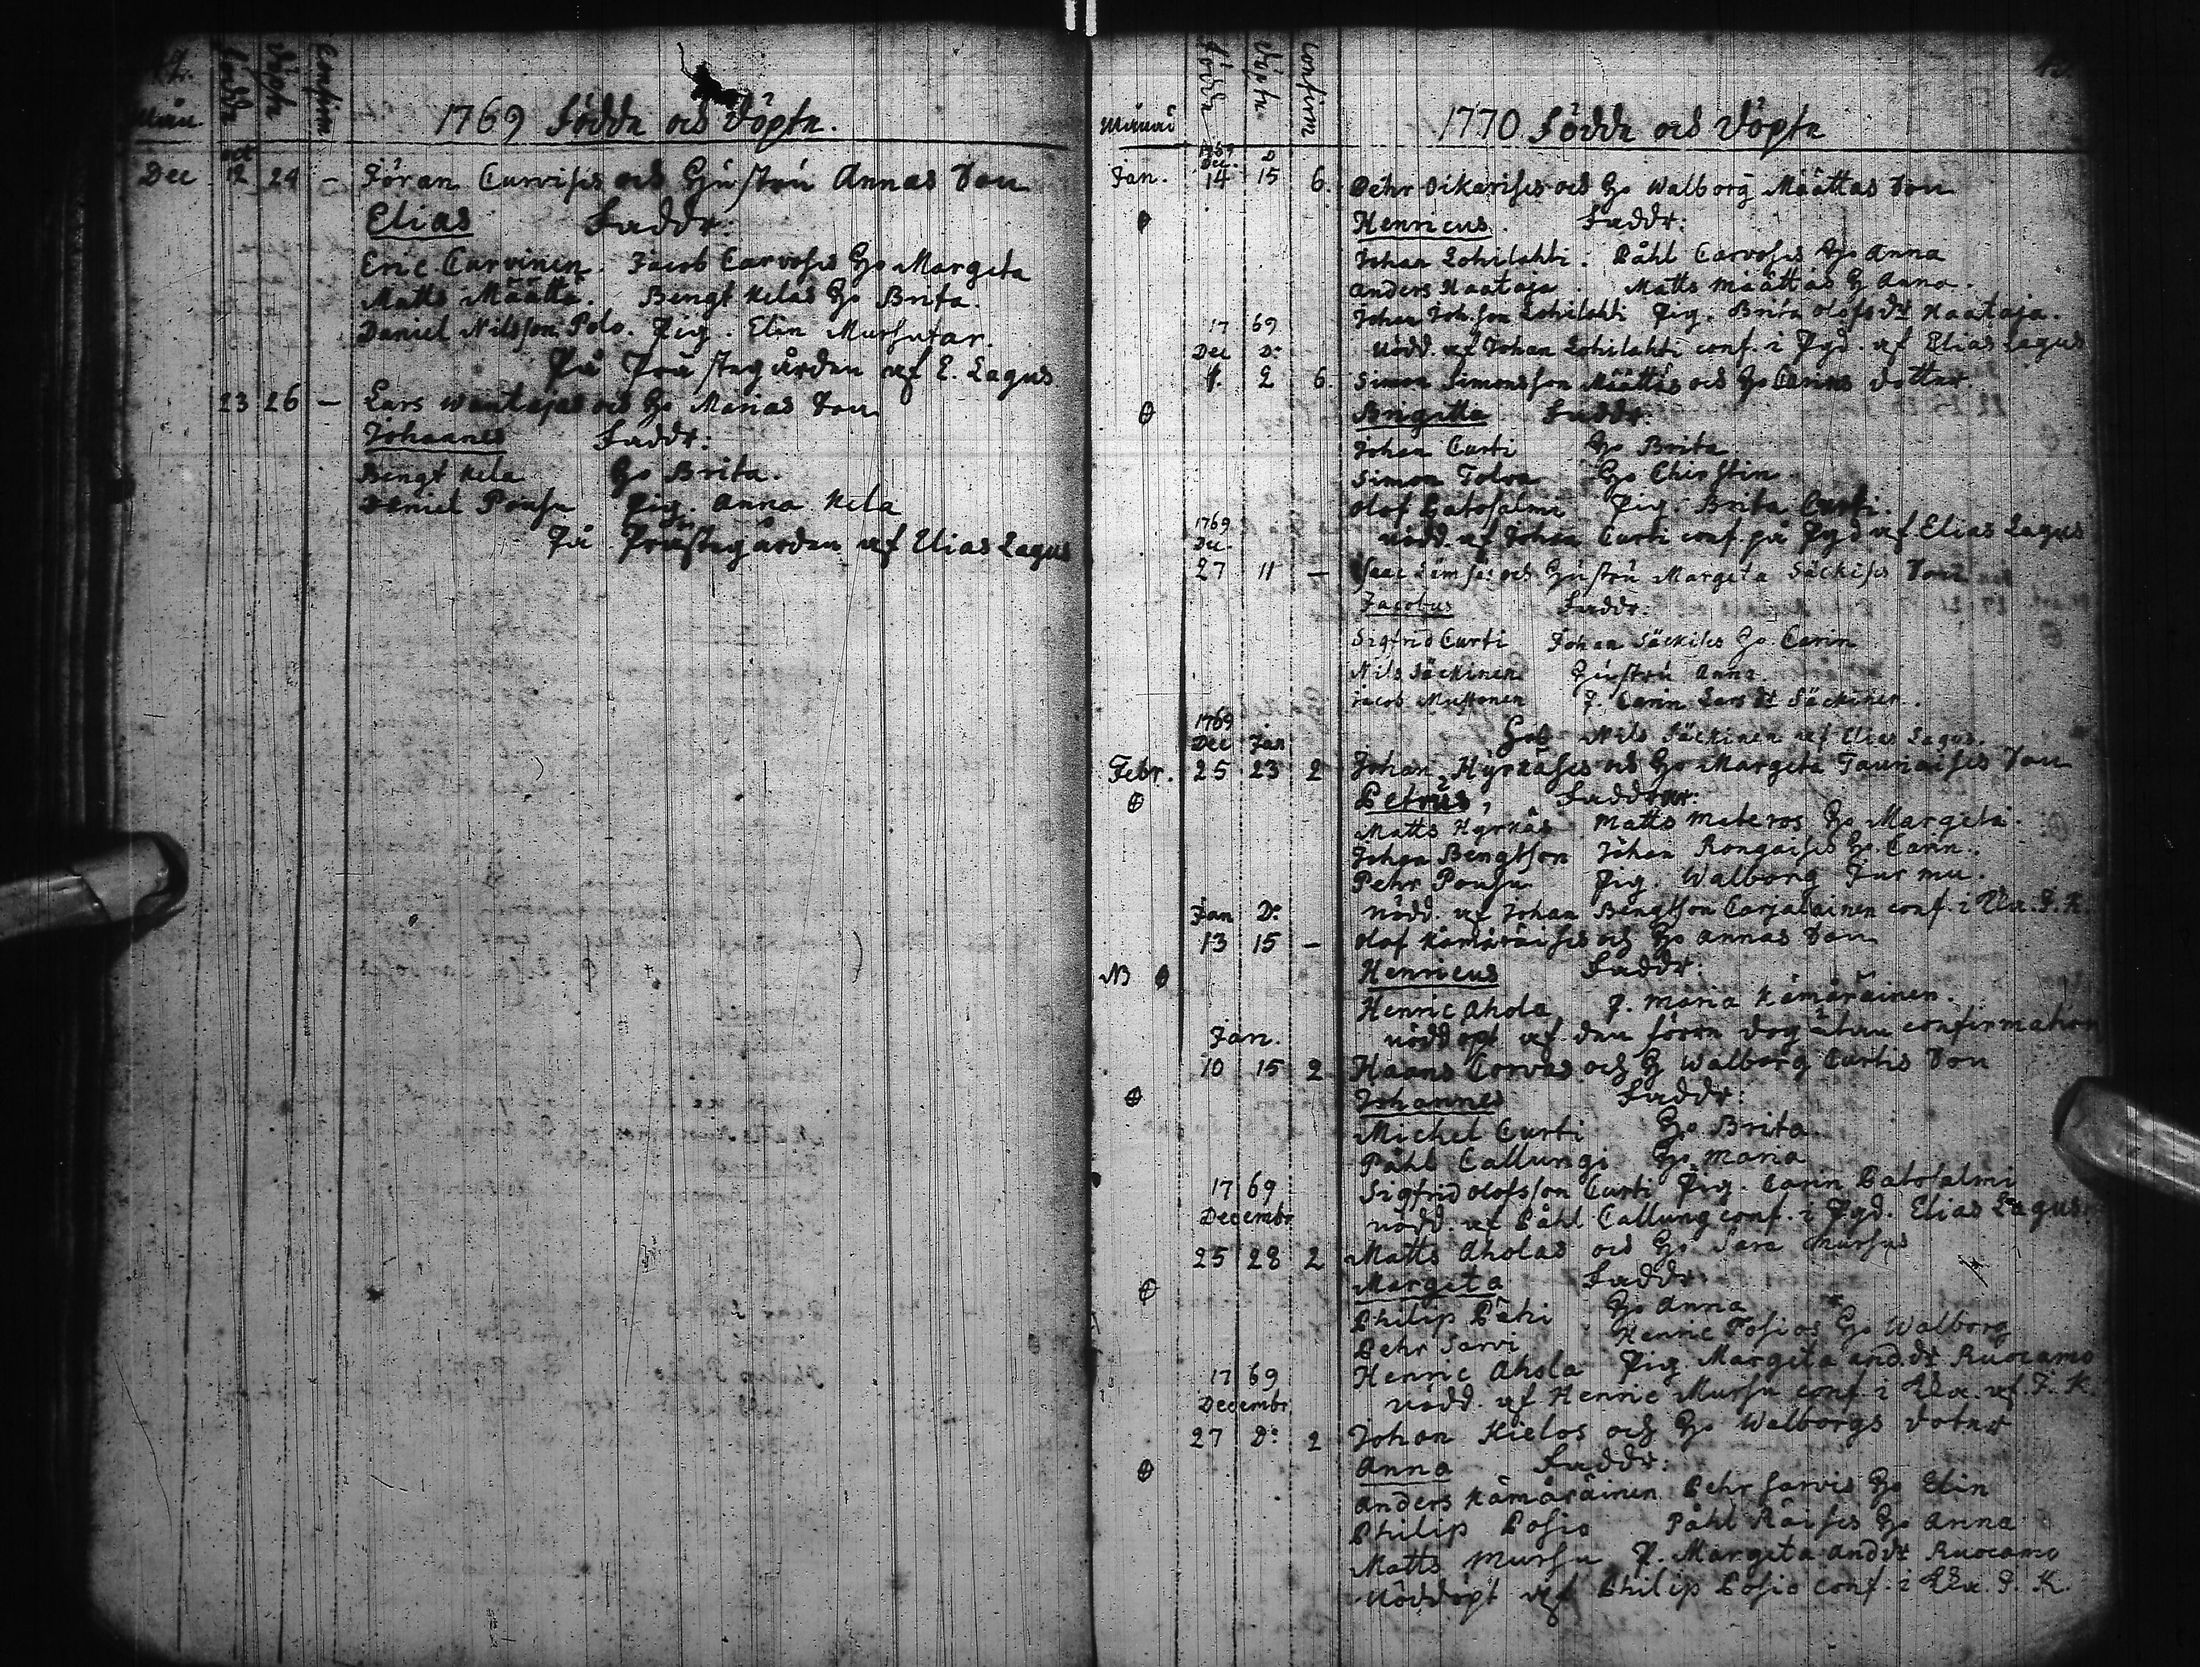 Mån. Födde Döpte Confirm
1769 Födde och Döpte.
Dec oct 12 24 – Jöran Curvises och Hustru Annas Son
Elias Faddr:
Eric Curvinen. Jacob Carvoses Ho Margeta
Matts Määttä. Bengt Kelas Ho Brita.
Daniel Nilsson Polo. Pig. Elin Mursutar.
På Prästegården af E. Lagus
23 26 – Lars Wantajas och Ho Marias Son
Johannes Faddr:
Bengt Kela Ho Brita.
Daniel Pousu Pig. Anna Kela
På Prästegården af Elias Lagus
Månad Födde Döpte Confirm
1770 Födde och Döpte
1769 Dec. D
Jan. 14 15 6 Pehr Oikarises och Ho Walborg Määttas Son
Henricus. Faddr:
Johan Lohilahti. Påhl Carvoses Ho Anna
Anders Haataja. Matts Määttas H Anna.
Johan Joh.son Lohilahti Pig. Brita Olofs dr Haataja.
1769 Dec D:o
nödd. af Johan Lohilahti conf. i Pgd. af Elias Lagus
1. 2 6 Simon Simonsson Määttas och Ho Carins dotter
Brigitta Faddr:
Johan Curti Ho Brita
Simon Tolva Ho Chirstin
Olof Patosalmi Pig. Brita Curti.
1769 Dec.
nödd. af Johan Curti conf på Pgd af Elias Lagus
27 11 – Isac och Hustru Margeta Säckises Son
Jacobus Faddr:
Sigfrid Curti Johan Säckises Ho Carin
Nils Säckinen Hustru Anna
Jacob Mustonen P. Carin Lars dr Säckinen.
1769 Dec Jan
Hos Nils Säckinen af Elias Lagus.
Febr. 25 23 2 Johan Hyrkäses och Ho Margeta Tauriaises Son
Petrus, Faddrar:
Matts Hyrkäs Matts Materos Ho Margeta.
Johan Bengtson Johan Rongaises Ho Carin.
Pehr Pousu Pig. Walborg Jurmu.
Jan D:o
nödd. af Johan Bengtson Carjalainen conf. i J. K.
13 15 – Olof Kämäräises och Ho Annas Son
Henricus Faddr:
NB
Henric Ahola P. Maria Kämäräinen.
Jan.
nöddöpt af den förra dog utan confirmation
10 15 2 Haans Corvas och H Walborg Curtis Son
Johannes Faddr:
Michel Curti Ho Brita
Påhl Callungi Ho Maria
Sigfrid Olofsson Curti Pig. Carin Patosalmi
1769 Decembr
nödd. af Påhl Callung conf. i Pgd. Elias Lagus
25 28 2 Matts Aholas och Ho Sara Mursus
Margeta Faddr:
Philip Päti Ho Anna
Pehr Sarvi Henric Posios Ho Walborg
Henric Ahola Pig. Margeta And.dr Ruocamo
1769 Decembr
nödd. af Henric Mursu conf. i af J. K.
27 D:o 2 Johan Kielos och Ho Walborgs dotter
Anna Faddr:
Anders Kämäräinen Pehr Sarvis Ho Elin
Philip Posio Påhl Räises Ho Anna
Matts Mursu P. Margeta And dr Ruocamo
Nöddöpt af Philip Posio conf. i J. K.